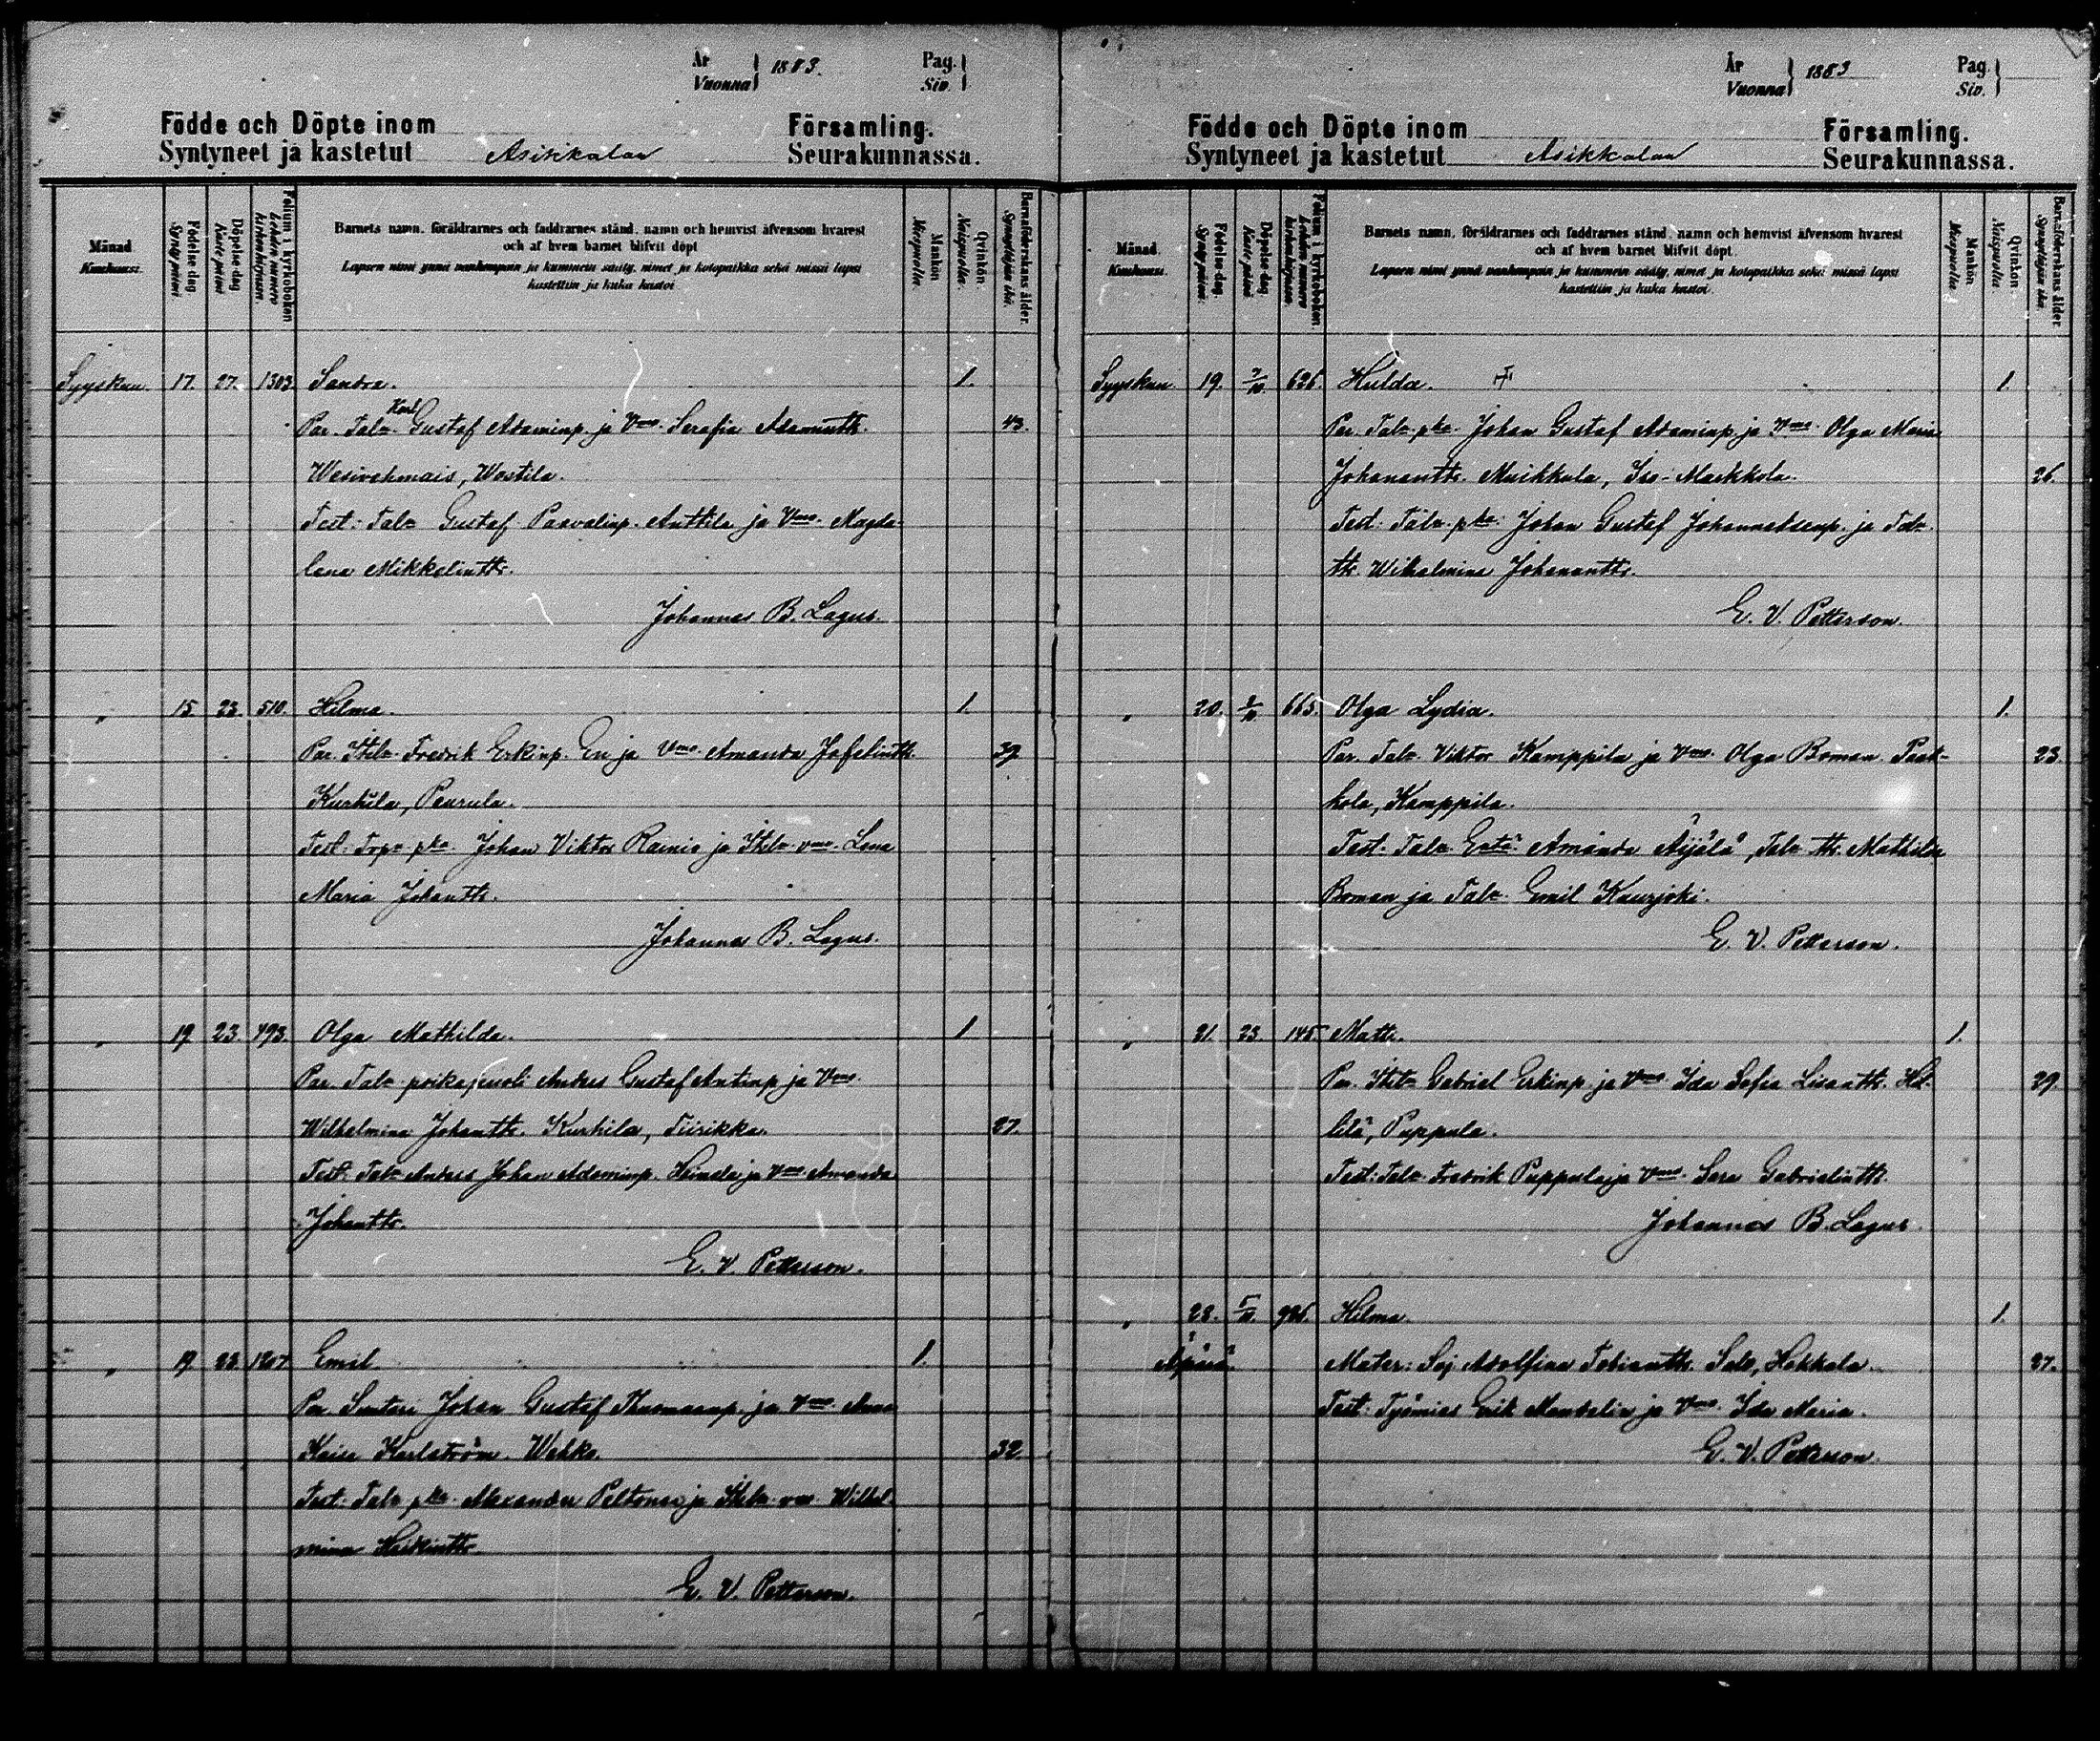 År
Vuonna } 1883.
Pag.
Siv. }
Födde och Döpte inom
Syntyneet ja kastetut Asikkalan
Församling.
Seurakunnassa.
Månad
Kuukausi.
Födelse-dag.
Synty päivä
Döpelse-dag
Kaste päivä
Folium i kyrkoboken
Lehden numero kirkonkirjassa.
Barnets namn, föräldrarnes och faddrarnes stånd, namn och hemvist äfvensom hvarest
och af hvem barnet blifvit döpt
Lapsen nimi ynnä vanhempain ja kummein sääty, nimet ja kotopaikka sekä missä lapsi
kastettiin ja kuka kastoi
Mankön
Miespuolia.
Qvinkön.
Naispuolia.
Barnaföderskans ålder.
Synnyttäjän ikä.
Syyskuu. 17. 27. 1303. Sandra. 1.
Par. Tal. Karl Gustaf Adaminp. ja Vmo. Serafia Adamintr. 43.
Wesivehmais, Westila.
Test: Tal. Gustaf Paavalinp. Anttila ja Vmo. Magda-
lena Mikkelintr.
Johannes B. Lagus.
" 15. 23. 510. Hilma. 1.
Par. Itsl. Fredrik Erkinp. En ja Vmo. Amanda Jofelintr. 39.
Kurhila, Peurula.
Test: Trp. pka. Johan Viktor Rainio ja Itsl. vmo. Lena
Maria Johantr.
Johannes B. Lagus.
" 19. 23. 493. Olga Mathilda. 1
Par. Tal. poikapuoli Anders Gustaf Antinp. ja Vmo.
Wilhelmina Johantr. Kurhila, Tiirikka. 27.
Test: Tal. Anders Johan Adaminp. Heinola ja Vmo. Amanda
Johantr.
E. V. Petterson.
" 19. 23. 1207. Emil. 1.
Par. Suutari Johan Gustaf Thomaanp. ja Vmo. Anna
Kaisa Karlström. Wähko. 32.
Test: Tal. pka. Alexander Peltonen ja Itsl. vmo. Wilhel-
mina Heikintr.
E. V. Petterson.
År
Vuonna } 1883
Pag.
Siv. }
Födde och Döpte inom
Syntyneet ja kastetut Asikkalan
Församling.
Seurakunnassa.
Månad
Kuukausi.
Födelse-dag.
Synty päivä.
Döpelse-dag
Kaste päivä
Folium i kyrkoboken.
Lehden numero kirkonkirjassa.
Barnets namn, föräldrarnes och faddrarnes stånd, namn och hemvist äfvensom hvarest
och af hvem barnet blifvit döpt.
Lapsen nimi ynnä vanhempain ja kummein sääty, nimet ja kotopaikka sekä missä lapsi
kastettiin ja kuka kastoi.
Mankön
Miespuolia
Qvinkön.
Naispuolia
Barnaföderskans ålder
Synnyttäjän ikä.
Syyskuu 19. 7/10. 626. Hulda. 1.
Par. Tal. pka. Johan Gustaf Adaminp. ja Vmo. Olga Maria
Johanantr. Muikkula, Iso-Markkola. 26.
Test: Tal. pka. Johan Gustaf Johanneksenp. ja Tal.
tr. Wilhelmina Johanantr.
E. V. Petterson.
" 20. 2/10 665. Olga Lydia. 1.
Par. Tal. Viktor Kamppila ja Vmo. Olga Boman. Paak- 23.
kola, Kamppila.
Test: Tal. Amanda Äijälä, Tal. tr. Mathilda
Boman ja Tal. Emil Kaurjoki.
E. V. Petterson.
" 21. 23. 145. Matti. 1.
Par. Itsl. Gabriel Erkinp. ja Vmo. Ida Sofia Lisantr. Hil- 29.
lilä, Puppula.
Test: Tal. Fredrik Puppula ja Vmo. Sara Gabrielintr.
Johannes B. Lagus.
" 28. 5/11. 926. Hilma. 1.
Äpärä. Mater: Itsj. Adolfina Tobiantr. Salo, Hokkala. 27.
Test: Työmies Erik Mandelin ja Vmo. Ida Maria.
E. V. Petterson.